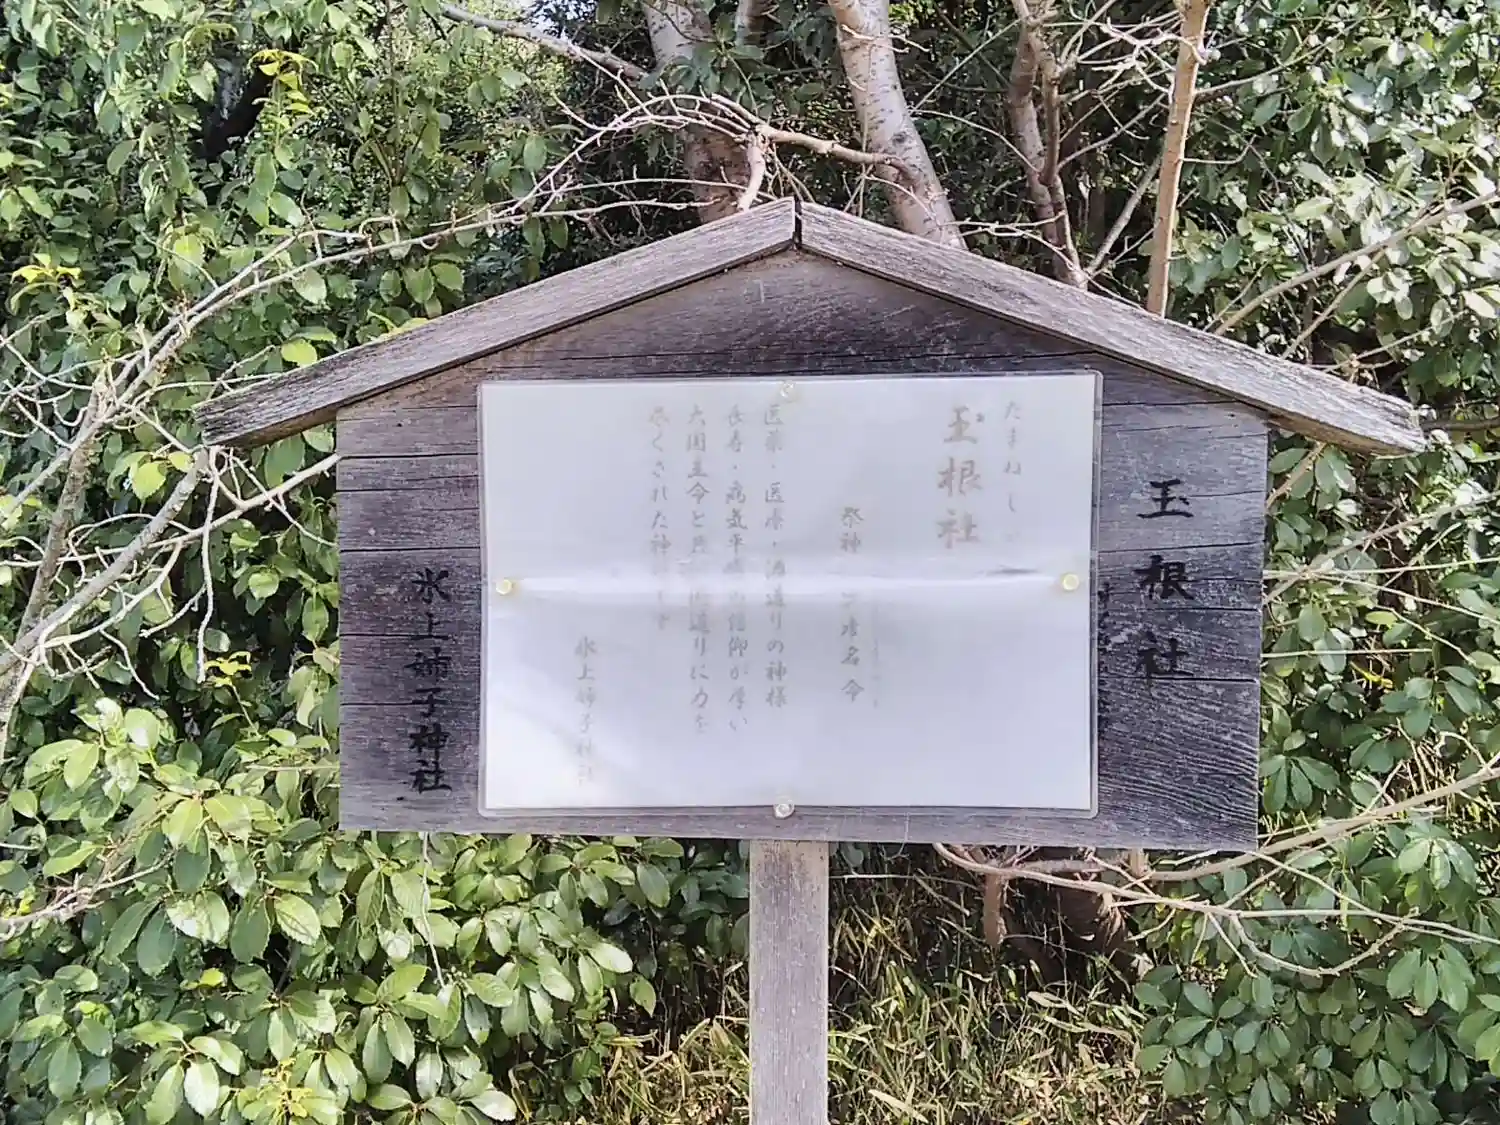 玉根社
たまねし
玉根社
祭神
名命
医薬・医療・酒造りの神様
長寿・病気平癒の信仰が厚い
大国主命と共に国造りに力を
尽くされた神
氷上姉子神社
氷上姉子神社